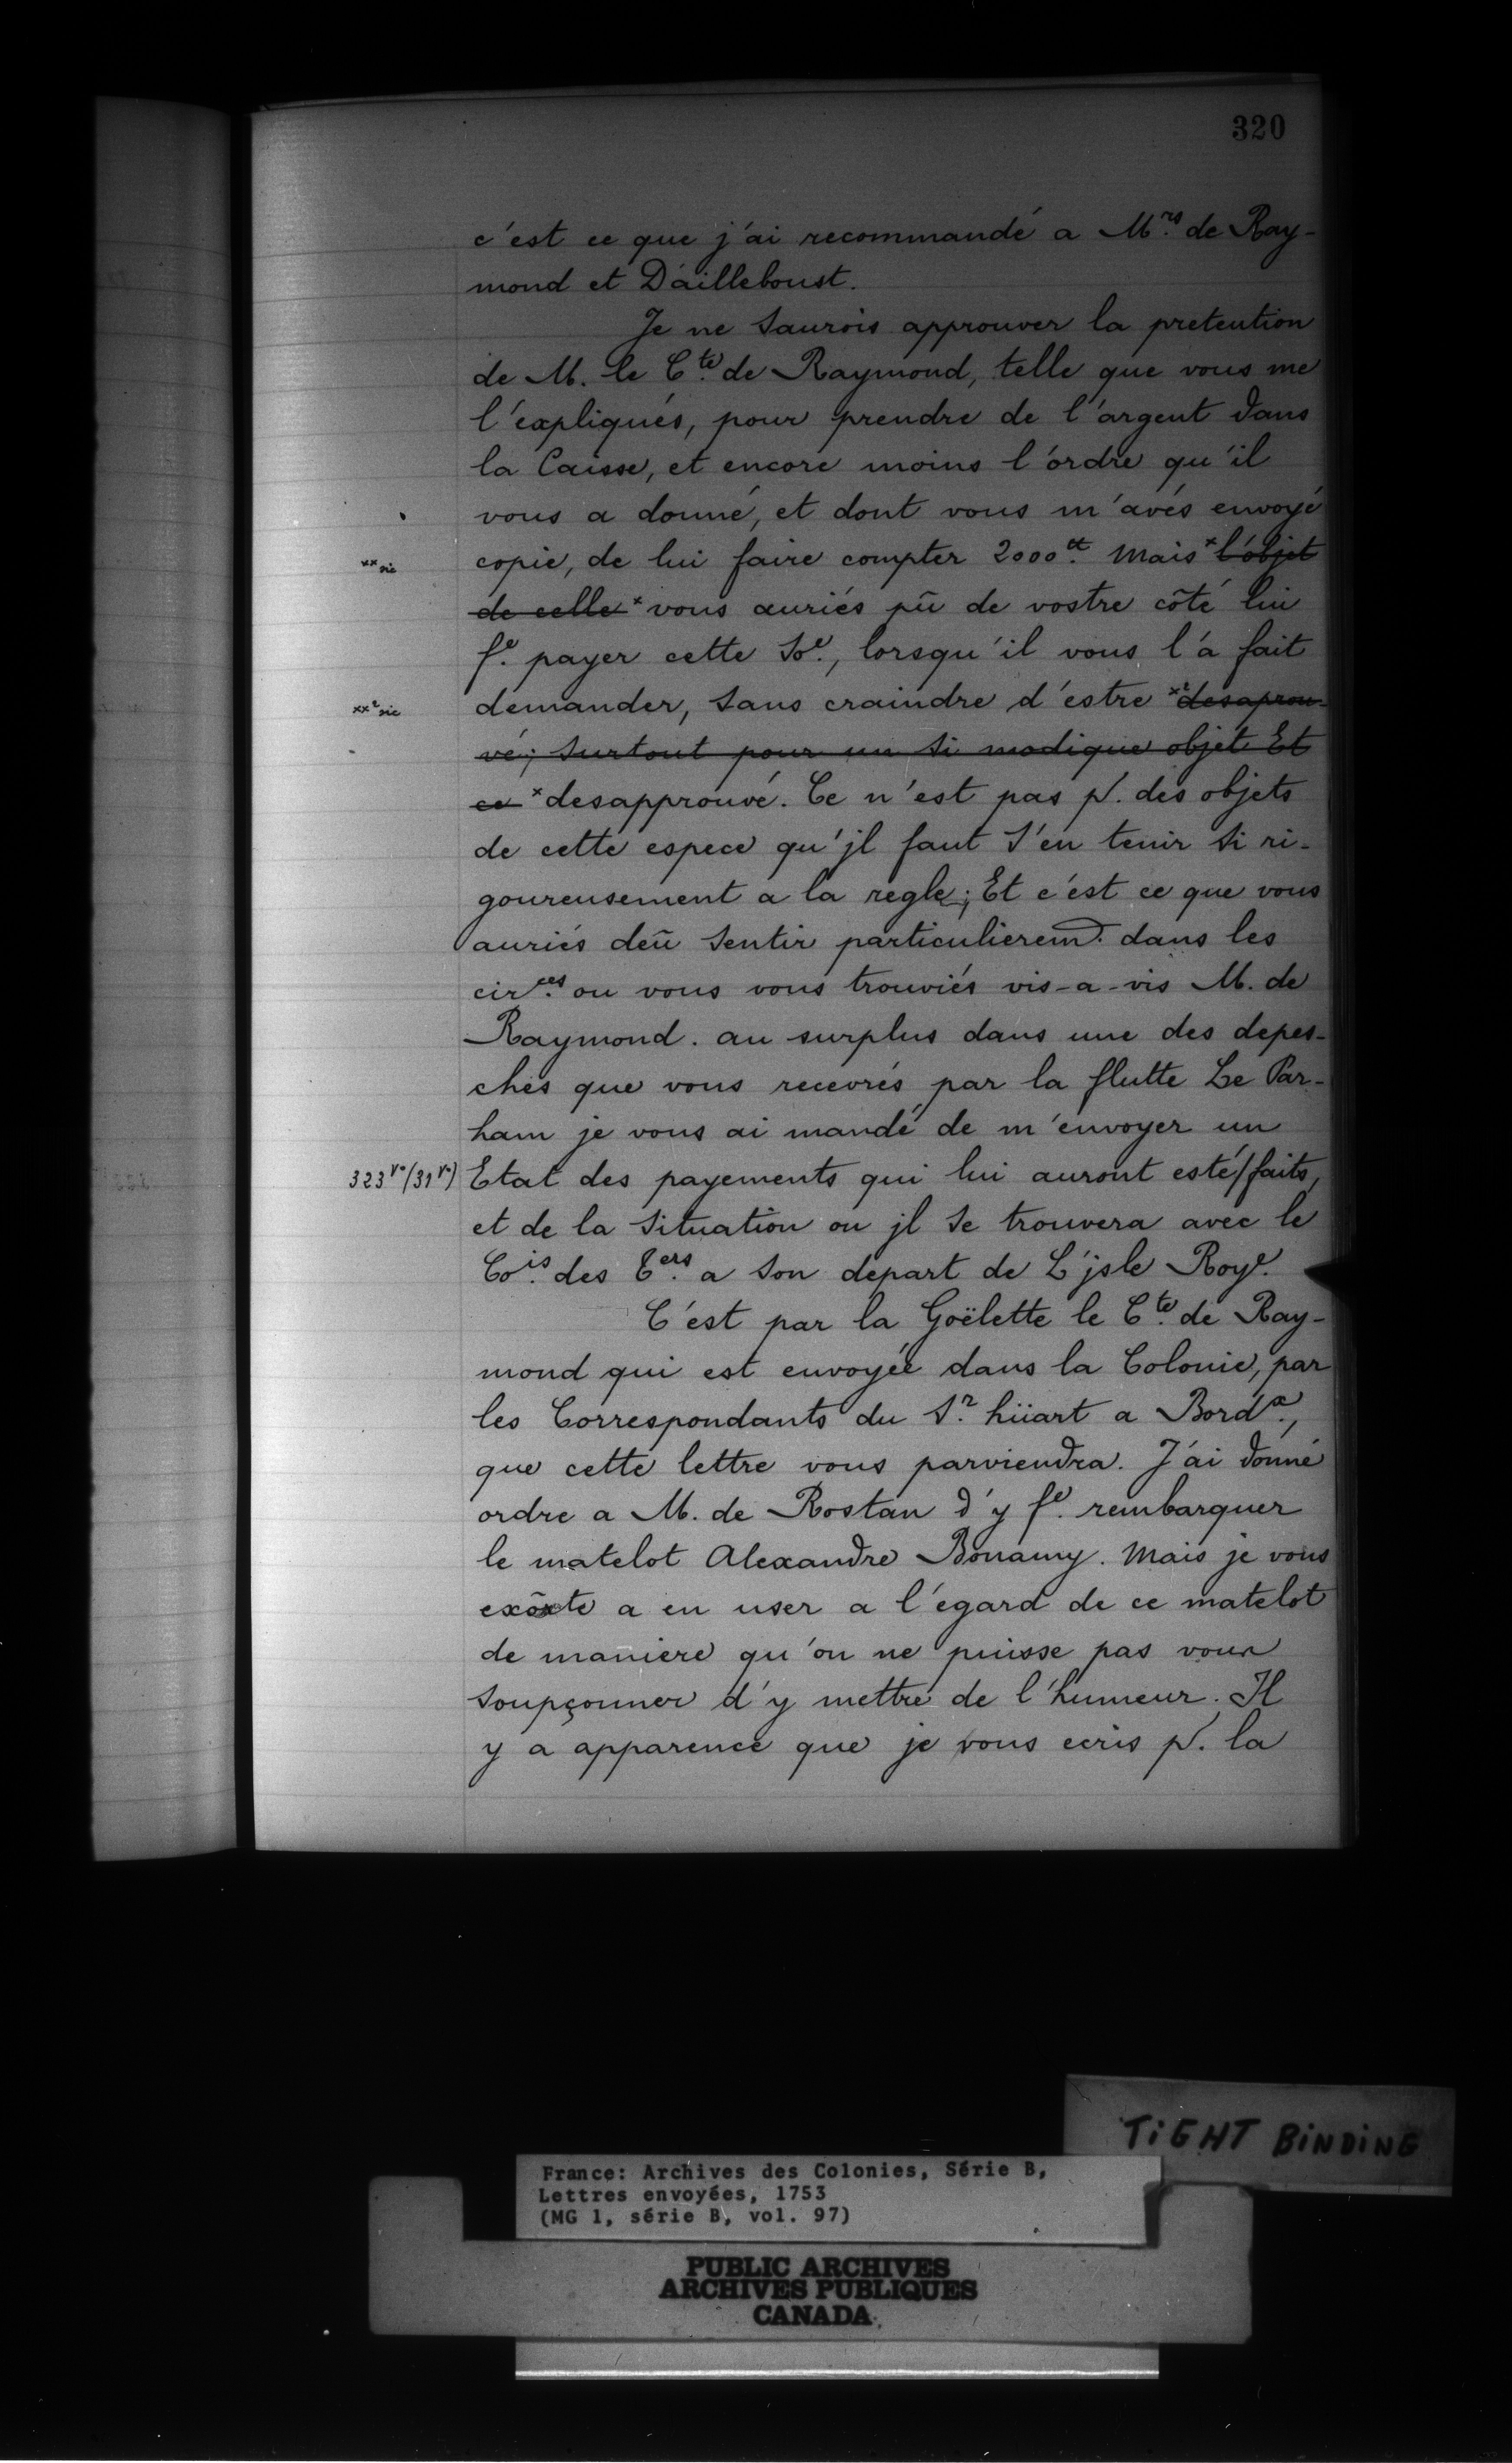 320
c'est ce que j'ai recommandé a M.rs de Ray-
mond et D'ailleboust.
Je ne saurois approuver la pretention
de M. le C.te de Raymond, telle que vous me
l'expliqués, pour prendre de l'argent dans
la Caisse, et encore moins l'ordre qu'il
vous a donné, et dont vous m'avés envoyé
xx sic
copie, de lui faire compter 2000.tt Mais x l'objet
de celle x vous auriés pû de vostre côté lui
f.e payer cette So.e, lorsqu'il vous l'a fait
xx² sic
demander, sans craindre d'estre x² desaprou-
vé; surtout pour un si modique objet Et
ce x desapprouvé. Ce n'est pas p.r des objets
de cette espece qu'jl faut s'en tenir si ri-
goureusement a la regle; Et c'est ce que vous
auriés deû sentir particulierem.t dans les
cir.ces ou vous vous trouviés vis-a-vis M. de
Raymond. au surplus dans une des depes-
ches que vous recevrés par la flutte Le Par-
ham je vous ai mandé de m'envoyer un
323 v°/(31 v°)
Etat des payements qui lui auront esté/faits,
et de la situation ou jl se trouvera avec le
Co.is des T.ers a son depart de L'jsle Roy.e
C'est par la Goëlette le C.te de Ray-
mond qui est envoyée dans la Colonie, par
les Correspondants du S.r hüart a Bord.x,
que cette lettre vous parviendra. J'ai donné
ordre a M. de Rostan d'y f.e rembarquer
le matelot Alexandre Bonamy. Mais je vous
exorte a en user a l'égard de ce matelot
de maniere qu'on ne puisse pas vous
soupçonner d'y mettre de l'humeur. Il
y a apparence que je vous ecris p.r la
TIGHT BINDING
France: Archives des Colonies, Série B,
Lettres envoyées, 1753
(MG 1, série B, vol. 97)
PUBLIC ARCHIVES
ARCHIVES PUBLIQUES
CANADA